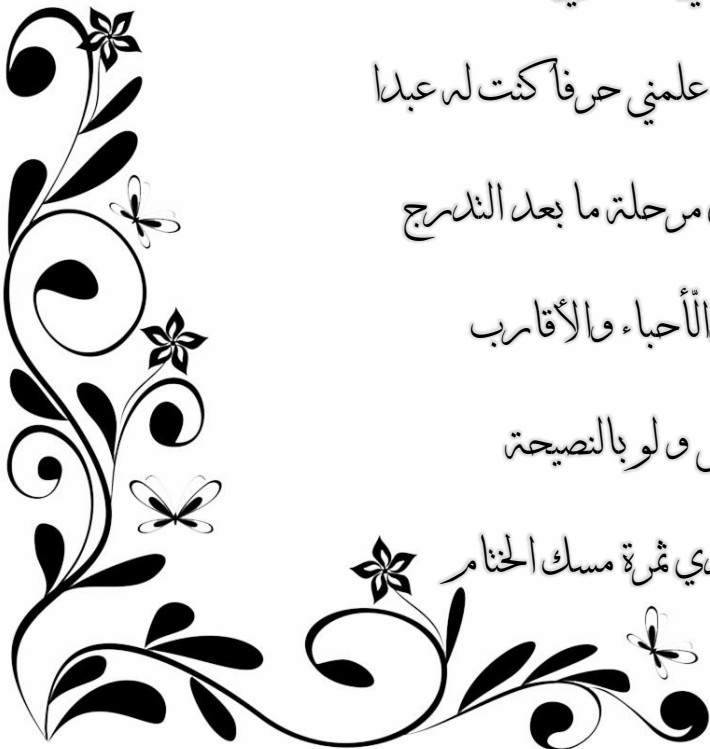 علمني حرفاً كنت له عبدا
مرحلة ما بعد التدرج
الأحباء والأقارب
و لو بالنصيحة
ثمرة مسك الختام